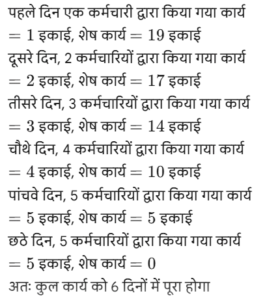 पहले दिन एक कर्मचारी द्वारा किया गया कार्य
= 1 इकाई, शेष कार्य = 19 इकाई
दूसरे दिन, 2 कर्मचारियों द्वारा किया गया कार्य
= 2 इकाई, शेष कार्य = 17 इकाई
तीसरे दिन, 3 कर्मचारियों द्वारा किया गया कार्य
= 3 इकाई, शेष कार्य = 14 इकाई
चौथे दिन, 4 कर्मचारियों द्वारा किया गया कार्य
= 4 इकाई, शेष कार्य = 10 इकाई
पांचवे दिन, 5 कर्मचारियों द्वारा किया गया कार्य
= 5 इकाई, शेष कार्य = 5 इकाई
छठे दिन, 5 कर्मचारियों द्वारा किया गया कार्य
= 5 इकाई, शेष कार्य = 0
अतः कुल कार्य को 6 दिनों में पूरा होगा